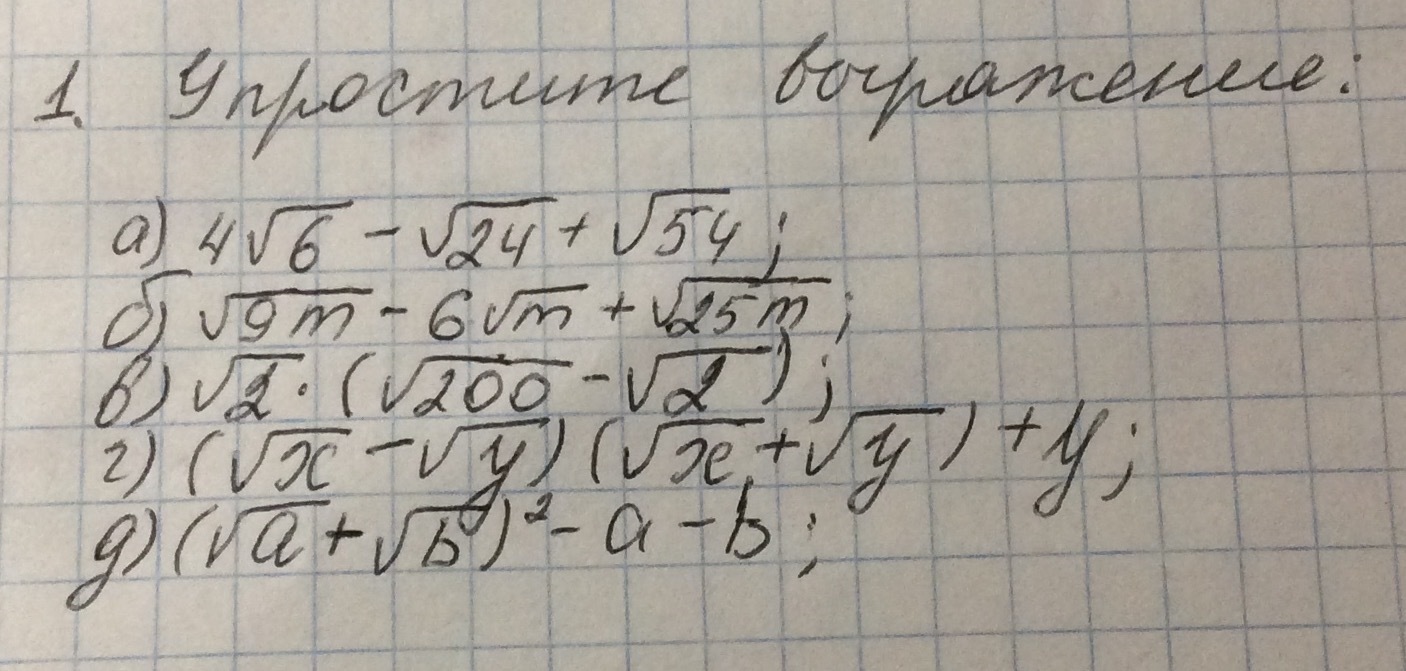 1. Упростите выражение:
а) 4√6 - √24 + √54;
б) √9m - 6√m + √25m;
в) √2 · (√200 - √2);
г) (√x - √y)(√x + √y) + y;
д) (√a + √b)² - a - b;